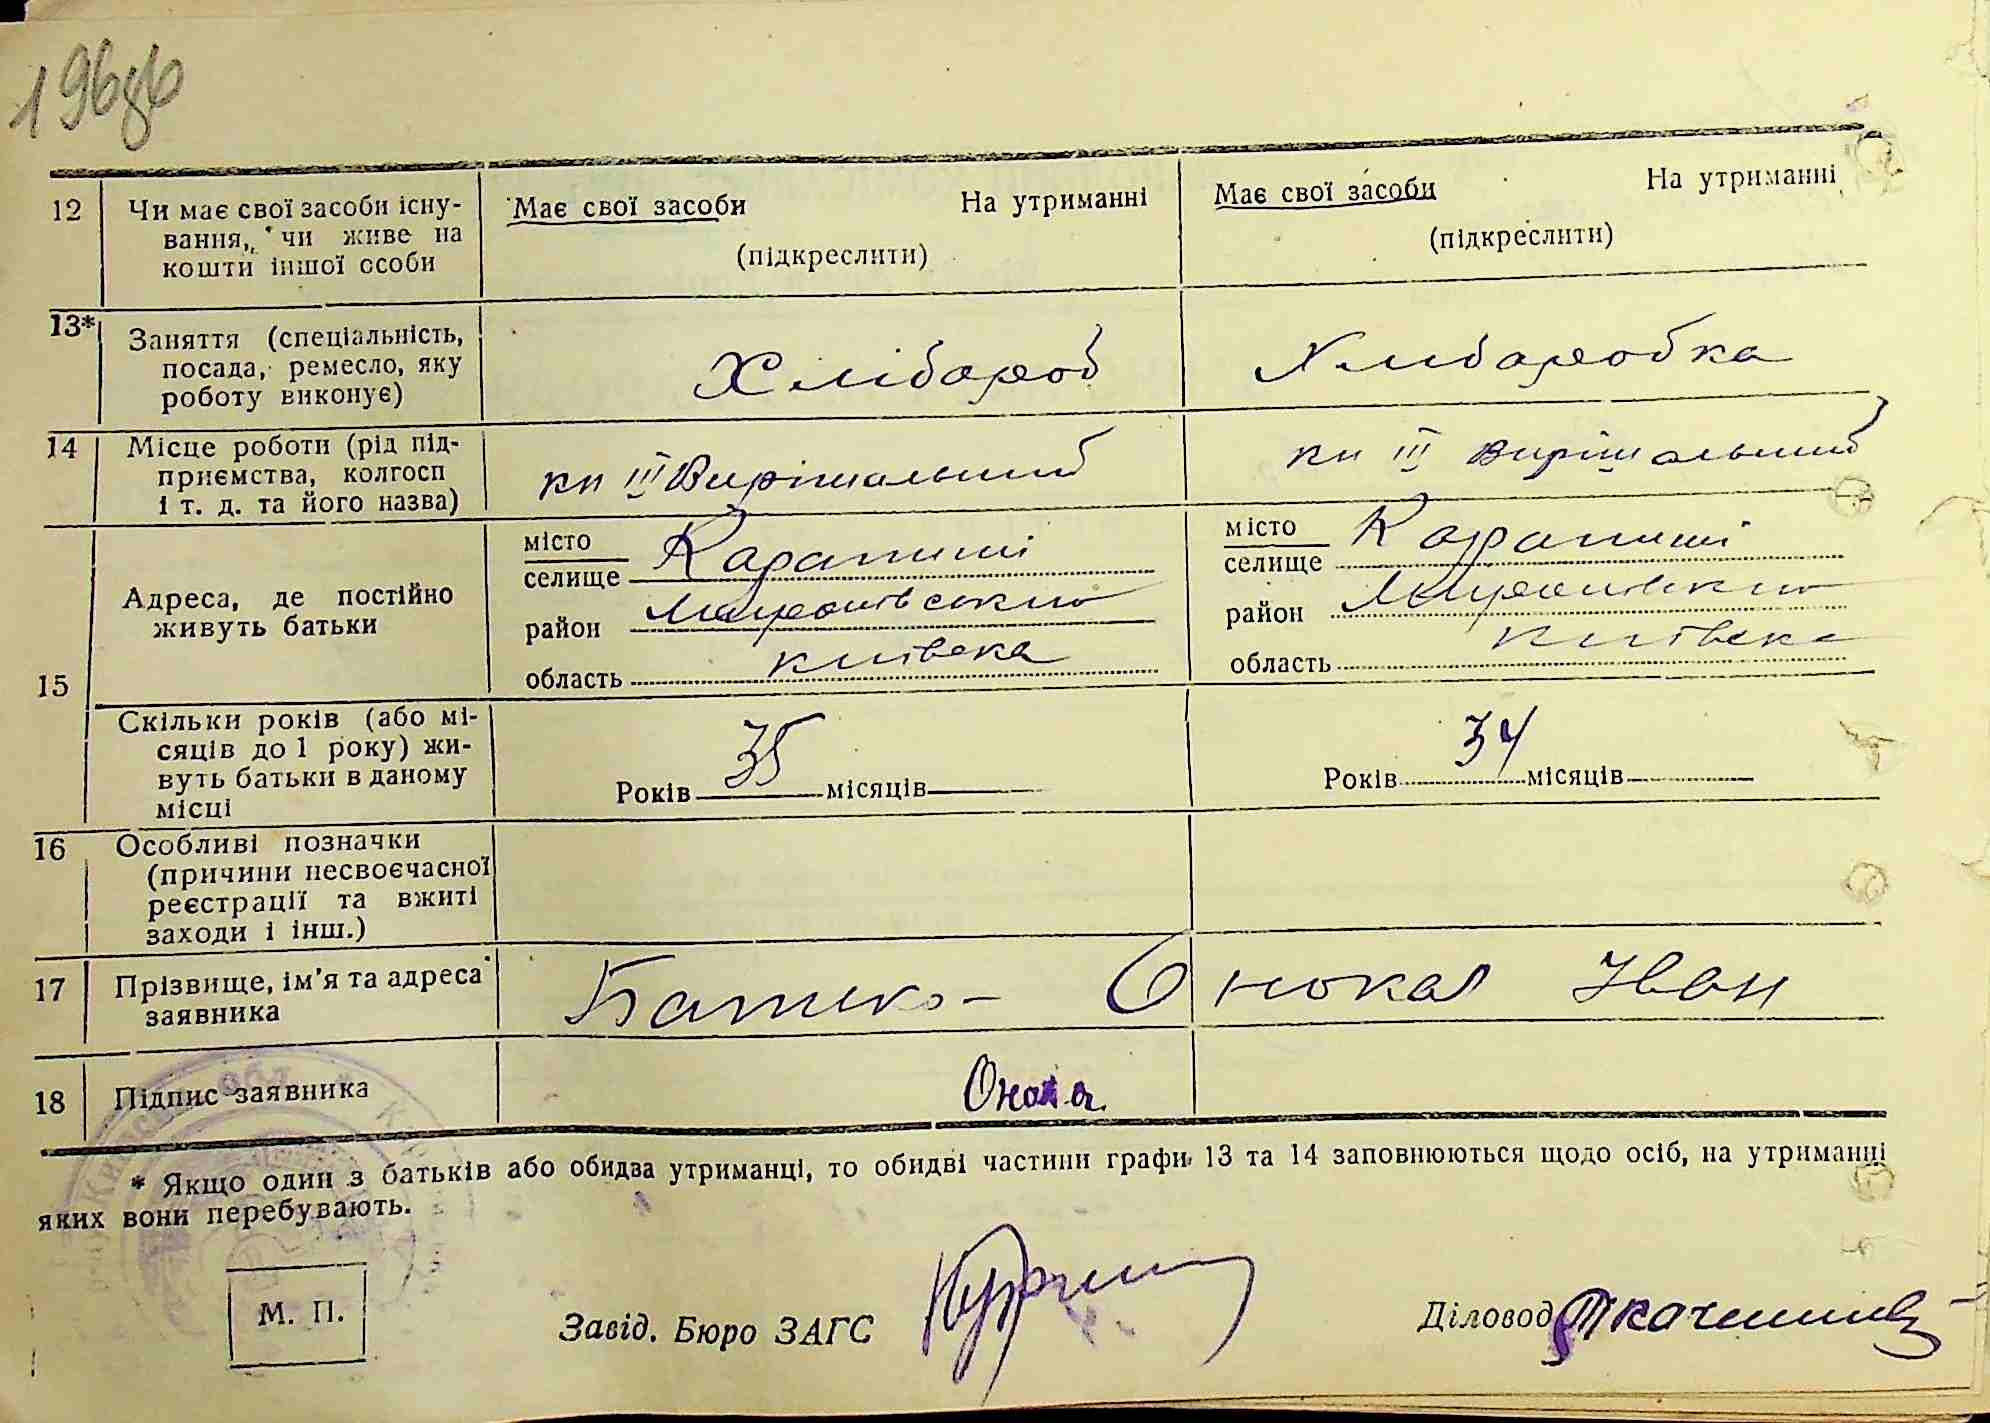 196зв
12 Чи має свої засоби існу- Має свої засоби На утриманні Має свої засоби На утриманні
вання, чи живе на (підкреслити) (підкреслити)
кошти іншої особи
13* Заняття (спеціальність, Хлібороб Хліборобка
посада, ремесло, яку
роботу виконує)
14 Місце роботи (рід під- кп III Вирішальний кп III Вирішальний
приємства, колгосп
і т. д. та його назва)
15 Адреса, де постійно
живуть батьки
місто Карапиші місто Карапиші
селище селище
район Миронівський район Миронівський
область київска область київска
Скільки років (або мі-
сяців до 1 року) жи-
вуть батьки в даному
місці
Років 35 місяців Років 34 місяців
16 Особливі позначки
(причини несвоєчасної
реєстрації та вжиті
заходи і інш.)
17 Прізвище, ім'я та адреса Батько - Онокал Іван
заявника
18 Підпис заявника
* Якщо один з батьків або обидва утриманці, то обидві частини графи 13 та 14 заповнюються щодо осіб, на утриманні
яких вони перебувають.
М. П. Завід. Бюро ЗАГС Діловод